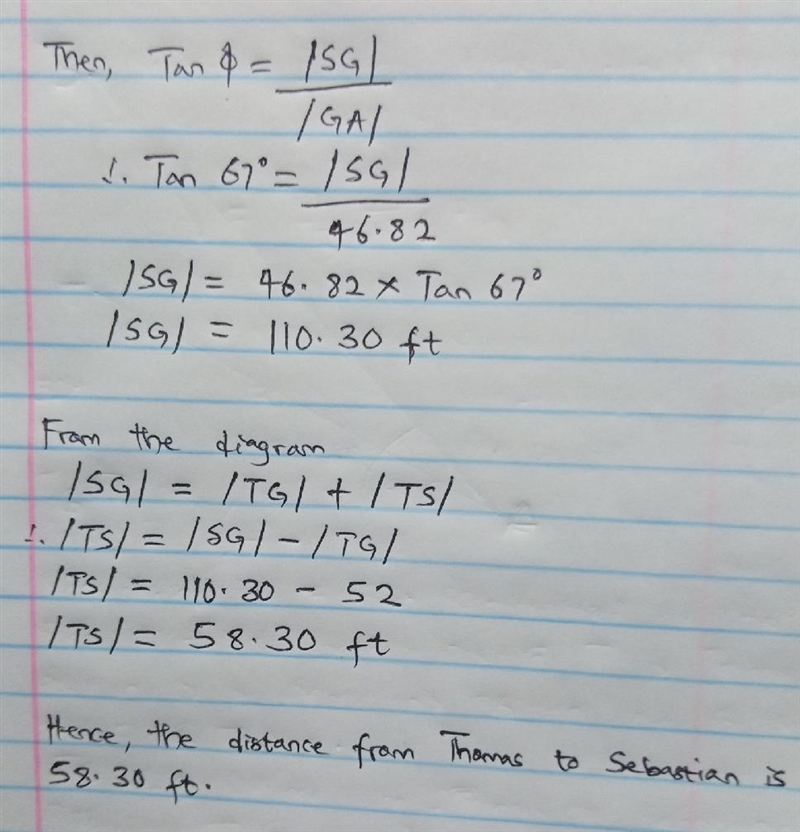 Then, Tan ϕ = |SG|
|GA|
∴ Tan 67° = |SG|
46.82
|SG| = 46.82 × Tan 67°
|SG| = 110.30 ft
From the diagram
|SG| = |TG| + |TS|
∴ |TS| = |SG| - |TG|
|TS| = 110.30 - 52
|TS| = 58.30 ft
Hence, the distance from Thomas to Sebastian is
58.30 ft.